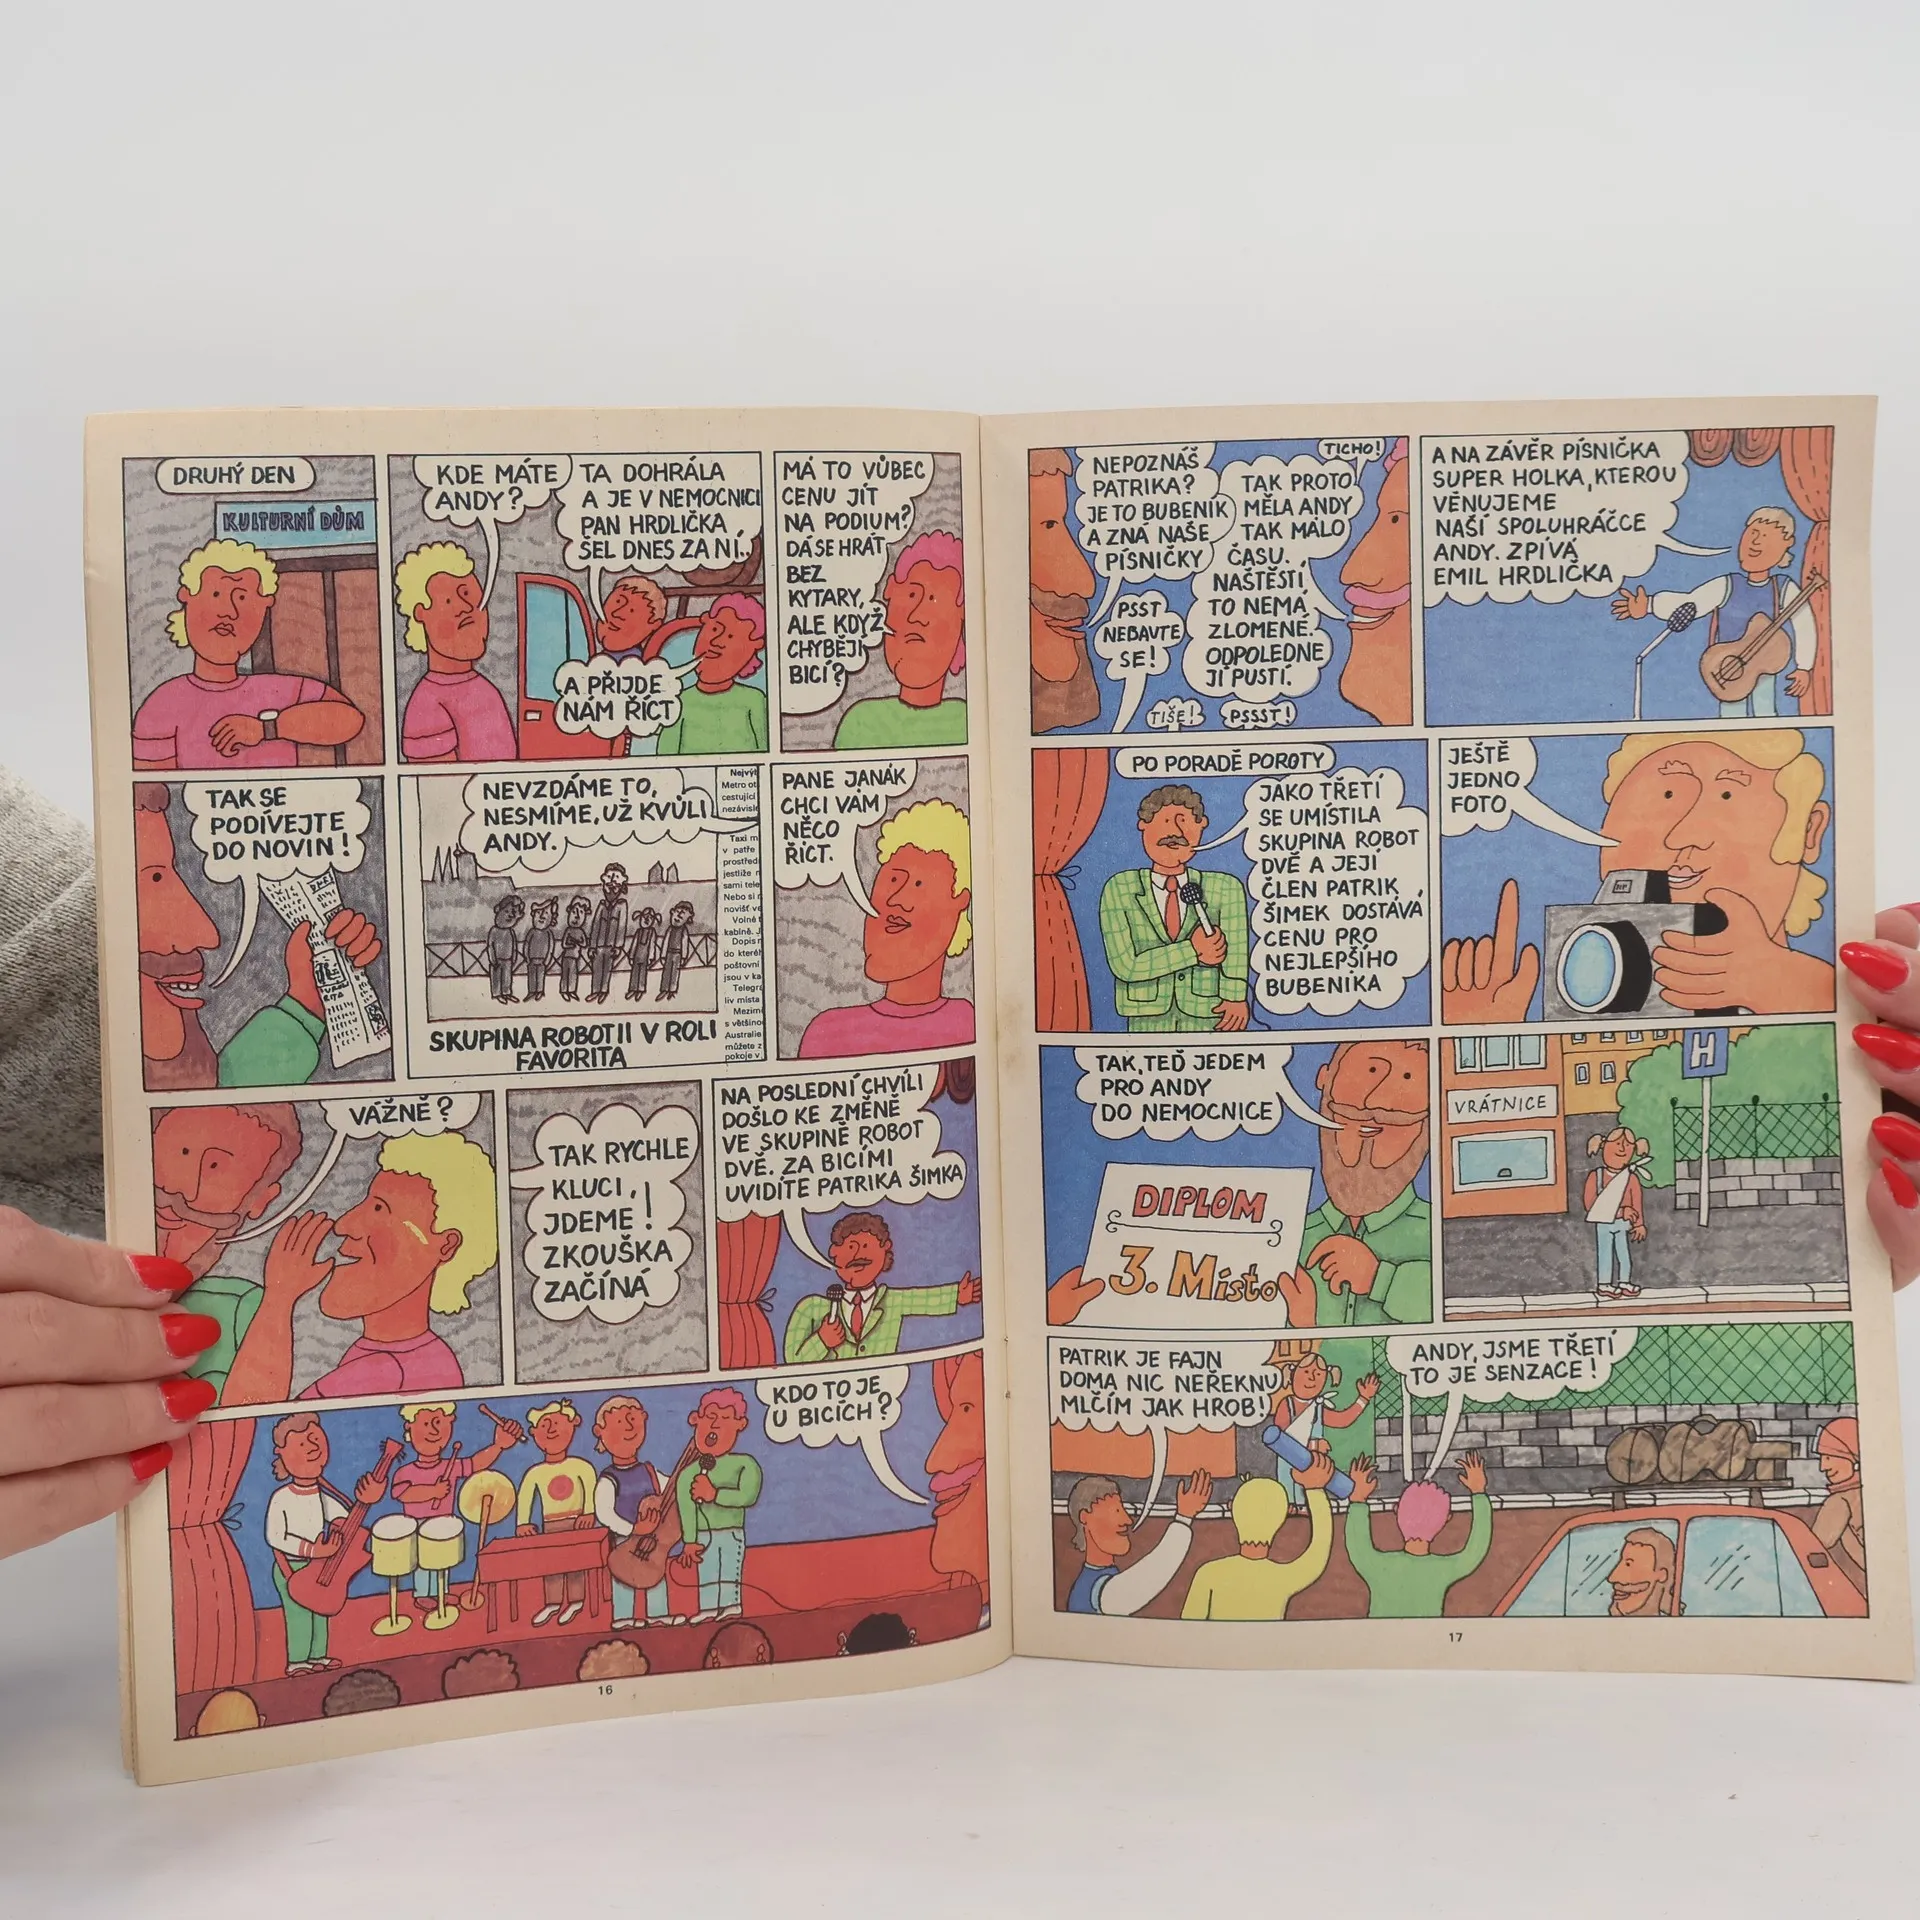 DRUHÝ DEN
KULTURNÍ DŮM
KDE MÁTE
ANDY?
TA DOHRÁLA
A JE V NEMOCNICI
PAN HRDLIČKA
ŠEL DNES ZA NÍ..
A PŘIJDE
NÁM ŘÍCT
MÁ TO VŮBEC
CENU JÍT
NA PODIUM?
DÁ SE HRÁT
BEZ
KYTARY,
ALE KDYŽ
CHYBĚJÍ
BICÍ?
TAK SE
PODÍVEJTE
DO NOVIN!
NEVZDÁME TO,
NESMÍME, UŽ KVŮLI
ANDY.
Nejvýt
Metro ot
cestující
nezávisle
Taxi m
v patře
prostřed
jestliže
sami tele
Nebo si
novišť ve
Volné
kabině. J
Dopis
do kteréh
poštovní
jsou v ka
Telegra
liv místa
Mezim
s většino
Australie
můžete z
pokoje v
SKUPINA ROBOT II V ROLI
FAVORITA
PANE JANÁK
CHCI VÁM
NĚCO
ŘÍCT.
VÁŽNĚ?
TAK RYCHLE
KLUCI,
JDEME!
ZKOUŠKA
ZAČÍNÁ
NA POSLEDNÍ CHVÍLI
DOŠLO KE ZMĚNĚ
VE SKUPINĚ ROBOT
DVĚ. ZA BICÍMI
UVIDÍTE PATRIKA ŠIMKA
KDO TO JE
U BICÍCH?
16
NEPOZNÁŠ
PATRIKA?
JE TO BUBENÍK
A ZNÁ NAŠE
PÍSNIČKY
PSST
NEBAVTE
SE!
TIŠE!
PSSST!
TICHO!
TAK PROTO
MĚLA ANDY
TAK MÁLO
ČASU.
NAŠTĚSTÍ
TO NEMÁ
ZLOMENÉ.
ODPOLEDNE
JI PUSTÍ.
A NA ZÁVĚR PÍSNIČKA
SUPER HOLKA, KTEROU
VĚNUJEME
NAŠÍ SPOLUHRÁČCE
ANDY. ZPÍVÁ
EMIL HRDLIČKA
PO PORADĚ POROTY
JAKO TŘETÍ
SE UMÍSTILA
SKUPINA ROBOT
DVĚ A JEJÍ
ČLEN PATRIK
ŠIMEK DOSTÁVÁ
CENU PRO
NEJLEPŠÍHO
BUBENÍKA
JEŠTĚ
JEDNO
FOTO
TAK, TEĎ JEDEM
PRO ANDY
DO NEMOCNICE
DIPLOM
3. Místo
H
VRÁTNICE
PATRIK JE FAJN
DOMA NIC NEŘEKNU
MLČÍM JAK HROB!
ANDY, JSME TŘETÍ
TO JE SENZACE!
17